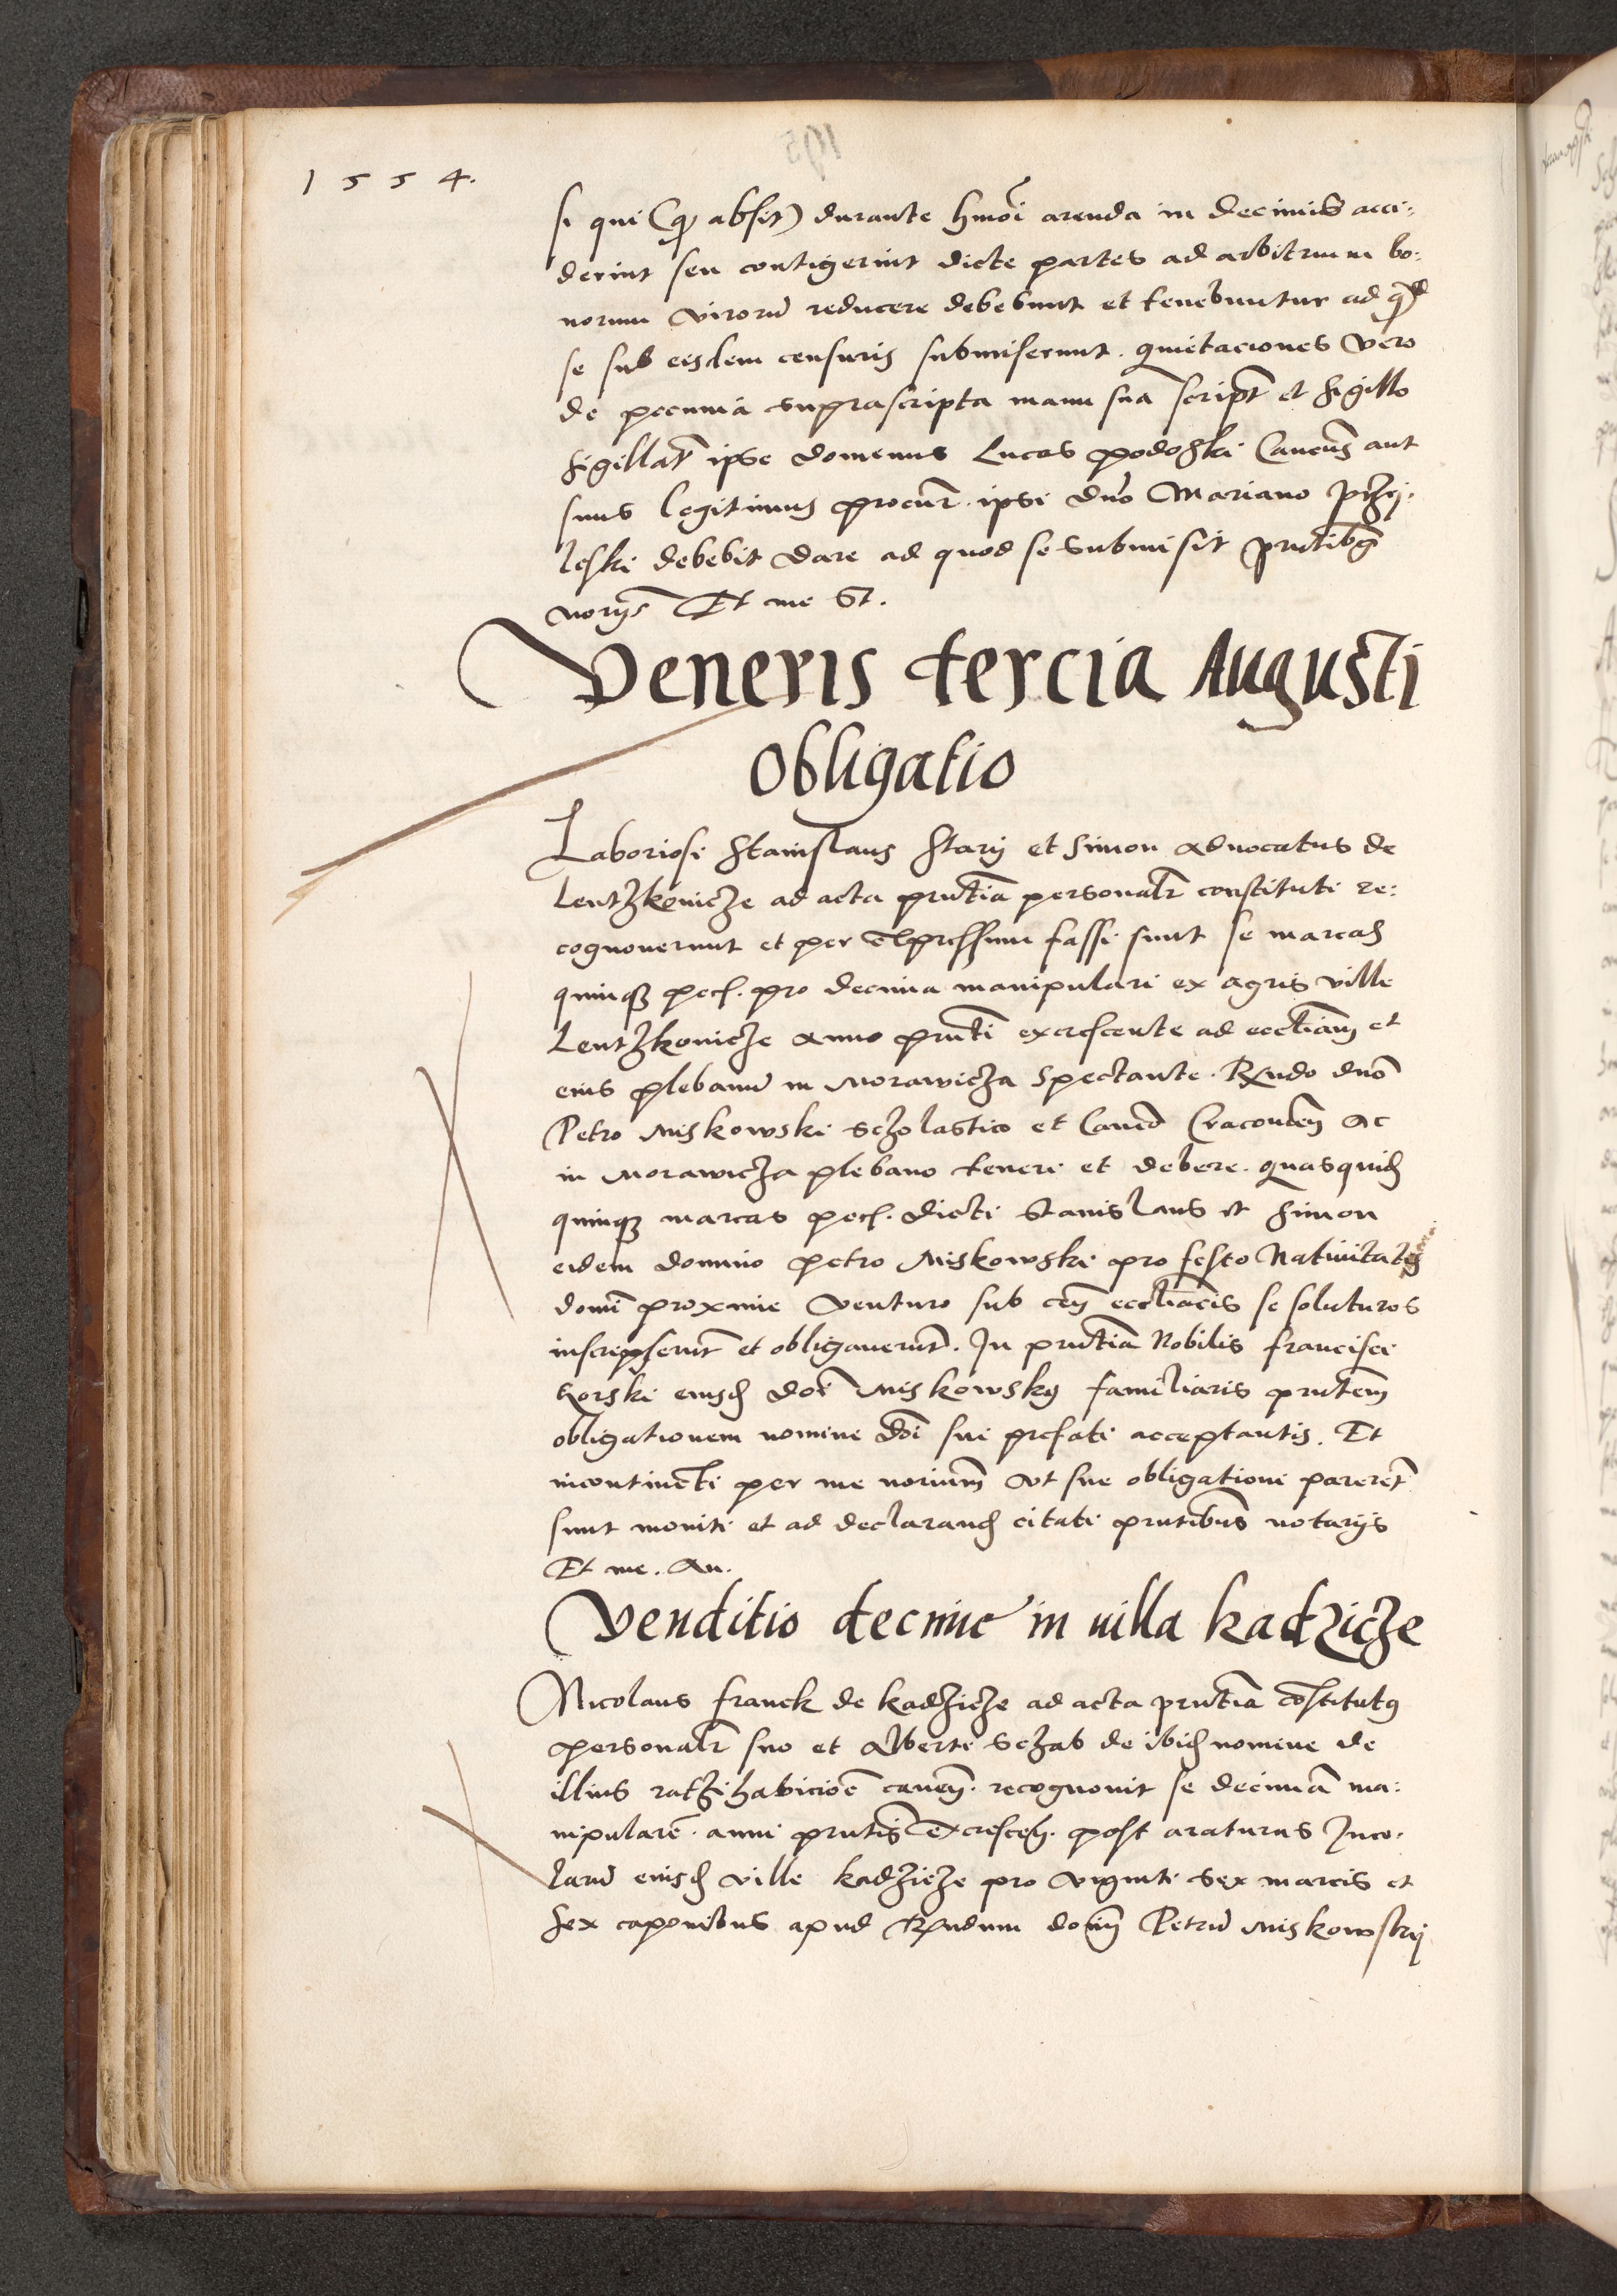 1554.
si qui (q̃ absit) durante hmõi arenda in decimis acci:
derint seu contigerint dicte partes ad arbitrium bo:
norum virorũ reducere debebunt et tenebuntur ad q̃d
se sub eisdem censuris submiserunt. quietaciones vero
de pecunia suprascripta manu sua script̃ et sigillo
sigillat̃ ipse domenus Lucas podoski Cancũs aut
suus legitimus procur̃. ipsi dño Mariano
leski debebit dare ad quod se submisit prñtibg
norijs Et me St.
Veneris tercia Augusti
Obligatio
Laboriosi Stanislaus Stary et Simon advocatus de
Lentzkowicze ad acta prñtia personalr̃ constituti re:
cognoverunt et per expressum fassi sunt se marcas
quinqz pecł. pro decima manipulari ex agris ville
Lentzkowicze anno prñti excrescente ad ecctiam et
eius plebanũ in Morawicza spectante. Rndo dño
Petro Miskowski Sczolastico et Canco Cracovien̄ ac
in Morawicza plebano teneri et debere. quasquid
quinqz marcas pecł. dicti Stanislaus et Simon
eidem domino petro Miskowski pro festo Nativitatis
domĩ proxime venturo sub cen̄ ecctiacis se soluturos
inscripserunt̃ et obligaverunt̃. In prñtia Nobilis francisci
Gorski eiusd doi Miskowsky familiaris prñtem
obligationem nomine doi sui prefati acceptantis. Et
incontinenti per me noriũm ut sue obligationi parerent̃
sunt moniti et ad declarand citati prñtibus notarijs
Et me. An.
Venditio decime in villa kadzicze
Nicolaus franck de kadzicze ad acta prñtia cõstitutg
personalr̃ suo et Alberti Sczab de ibid nomine de
illius ratzihabiciõe caven̄. recognovit se decimã ma:
nipularẽ. anni prñtis excrescen̄. post araturas Inco:
larũ eiusd ville kadzicze pro viginti sex marcis et
sex caponibus apud Rndum doīm Petrũ Miskowskij